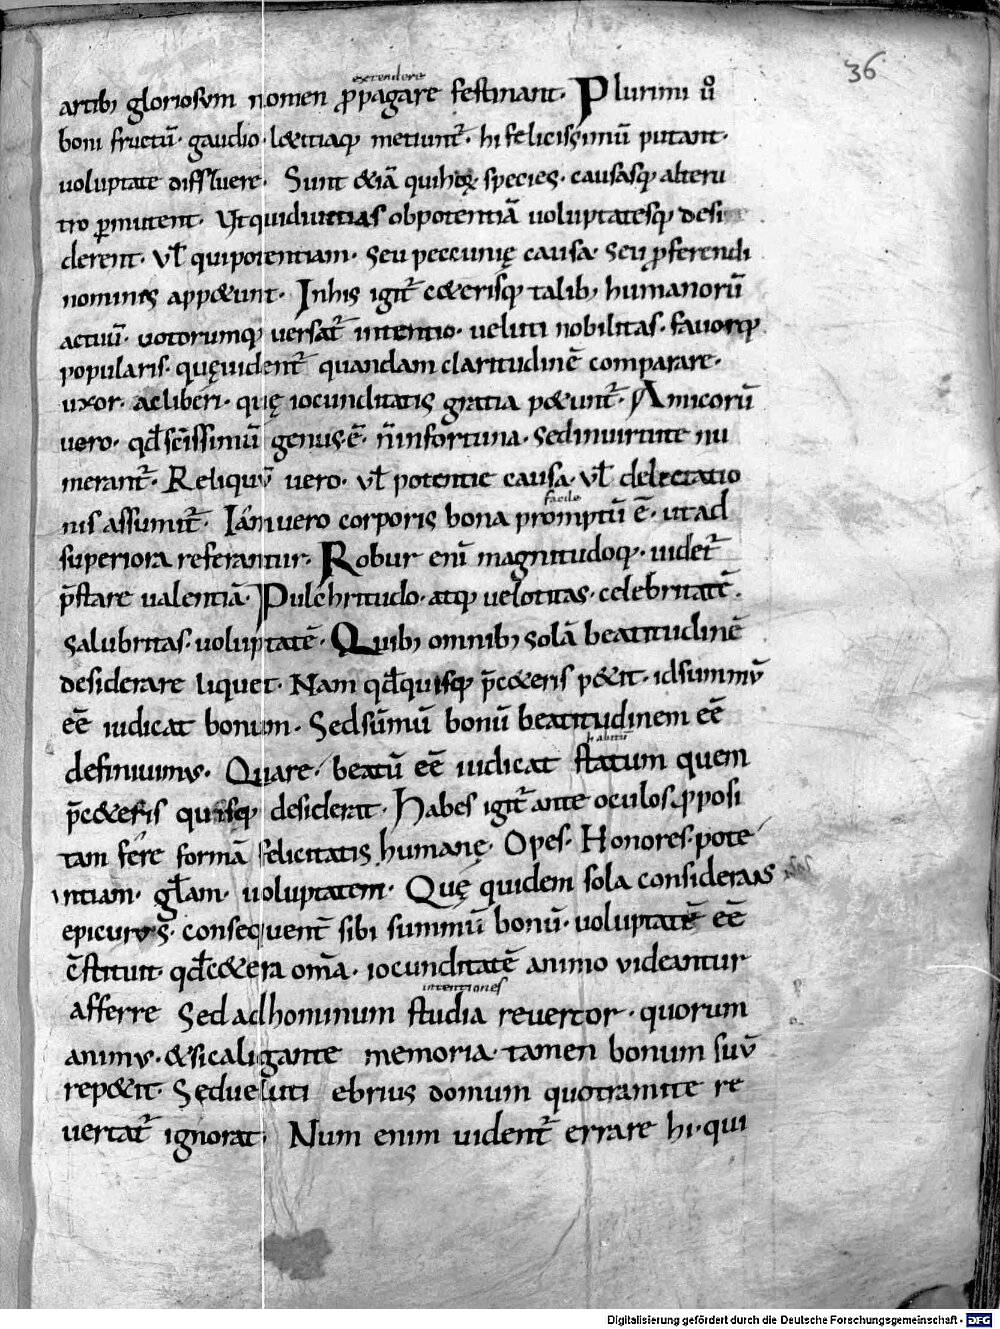 36
extendere
artib; gloriosum nomen p̱pagare festinant. Plurimi ů
boni fructū. gaudio. l&itiaq; metiunt̄. hi felicissimū putant.
uoluptate diffluere. Sunt &iā qui hęc species. causasq; alteru
tro ꝑmutent. Vt qui diuitias ob potentiā uoluptatesq; desi
derent. vl̄ qui potentiam. seu peccunię causa. seu ꝓferendi
nominis app&unt. In his igit̄ c&erisq; talib; humanorū
actuū. uotorumq; uersat̄ intentio. ueluti nobilitas. fauorq;
popularis. quę uident̄ quandam claritudinē comparare.
uxor. ac liberi. quę iocunditatis gratia p&unt̄. Amicorū
uero. qđ scīssimū genus ē. n̄ in fortuna. sed in uirtute nu
merant̄. Reliquū uero. vl̄ potentie causa. vl̄ delectatio
facile
nis assumit̄. Iam uero corporis bona promptū ē. ut ad
superiora referantur. Robur enī magnitudoq; uidet̄
p̄stare ualentiā. Pulchritudo. atq; uelocitas. celebritatē.
salubritas. uoluptatē. Quib; omnib; solā beatitudinē
desiderare liquet. Nam qđ quisq; p̄c&eris p&it. id summū
eē iudicat bonum. Sed sūmū bonū beatitudinem eē
habitū
definiuimus. Quare beatū eē iudicat statum quem
p̄c&eris quisq; desiderat. Habes igit̄ ante oculos ꝓposi
tam fere formā felicitatis humanę. Opes. Honores. pote
ntiam. gl̄am. uoluptatem. Quę quidem sola considerans
epicurus. consequent̄ sibi summū bonū. uoluptatē eē
c̄stituit. qđ c&era om̄a. iocunditatē animo videantur
intentiones
afferre Sed ad hominum studia revertor. quorum
animus. &si caligante memoria. tamen bonum suū
rep&it. Sed ueluti ebrius domum quo tramite re
uertat̄ ignorat. Num enim uident̄ errare hi. qui
Digitalisierung gefördert durch die Deutsche Forschungsgemeinschaft - DFG